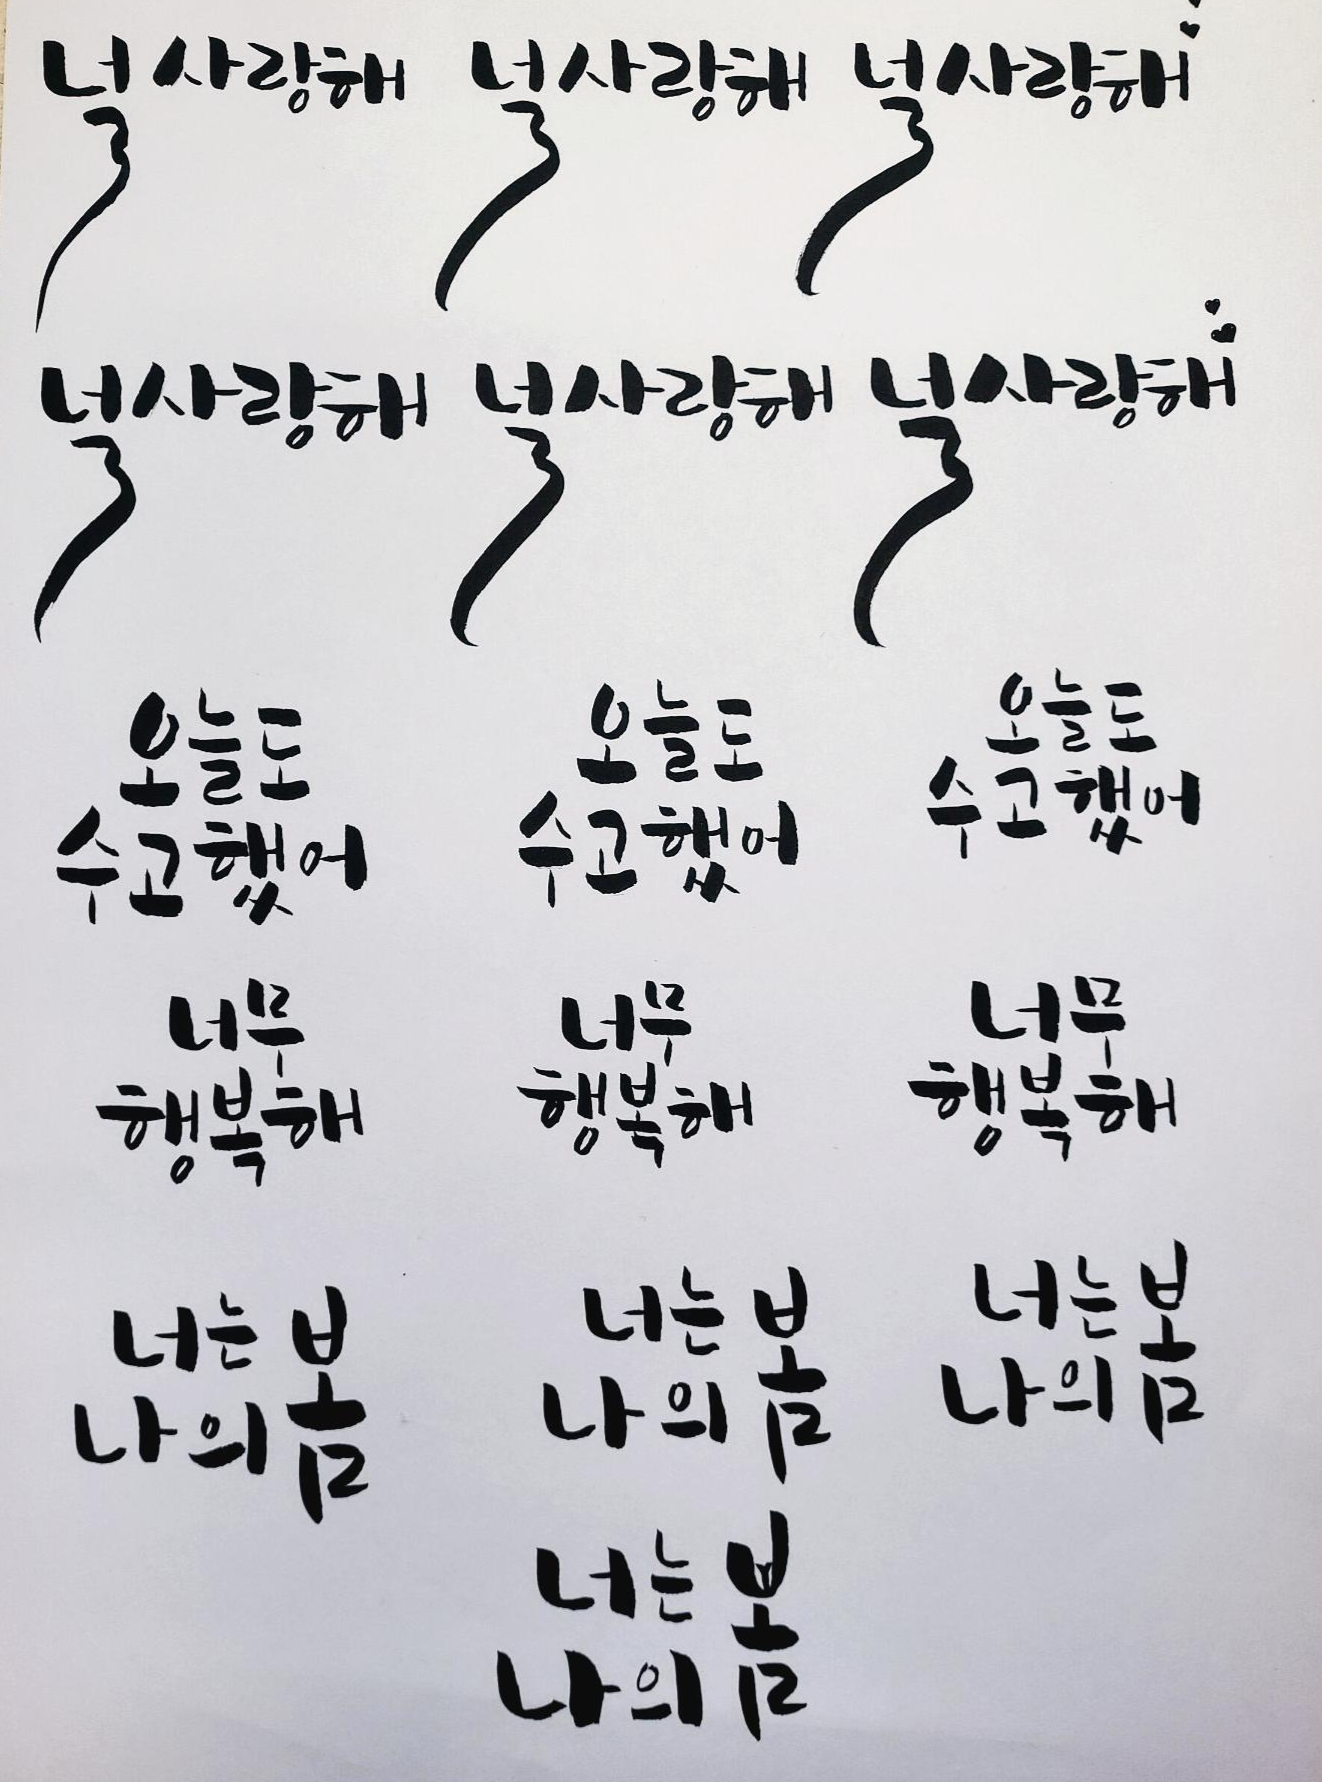 널 사랑해 널 사랑해 널 사랑해
널 사랑해 널 사랑해 널 사랑해
오늘도 오늘도 오늘도
수고했어 수고했어 수고했어
너무 너무 너무
행복해 행복해 행복해
너는 너는 너는
나의 봄 나의 봄 나의 봄
너는
나의 봄